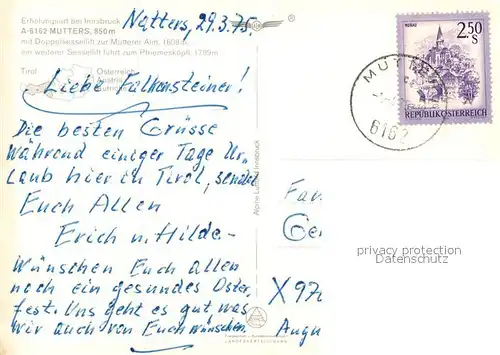 Erholungsort bei Innsbruck
A-6162 MUTTERS, 850m
mit Doppelsessellift zur Mutterer Alm, 1608 m
ein weiterer Sessellift führt zum Pfriemesköpfl, 1799m
Tirol
Österreich
Natters, 29.3.75,
Liebe Falkensteiner!
Die besten Grüsse
während einiger Tage Ur-
laub hier in Tirol, sendet
Euch Allen
Erich u. Hilde-
Wünschen Euch allen
noch ein gesundes Oster
fest. Uns geht es gut was
wir auch von Euch wünschen.
Alpine Luftbild Innsbruck
2.50
S
MURAU
REPUBLIK ÖSTERREICH
MUTTERS
6162
Fam
Ger
X97
Augu
privacy protection
DARKOMANNEN.COM